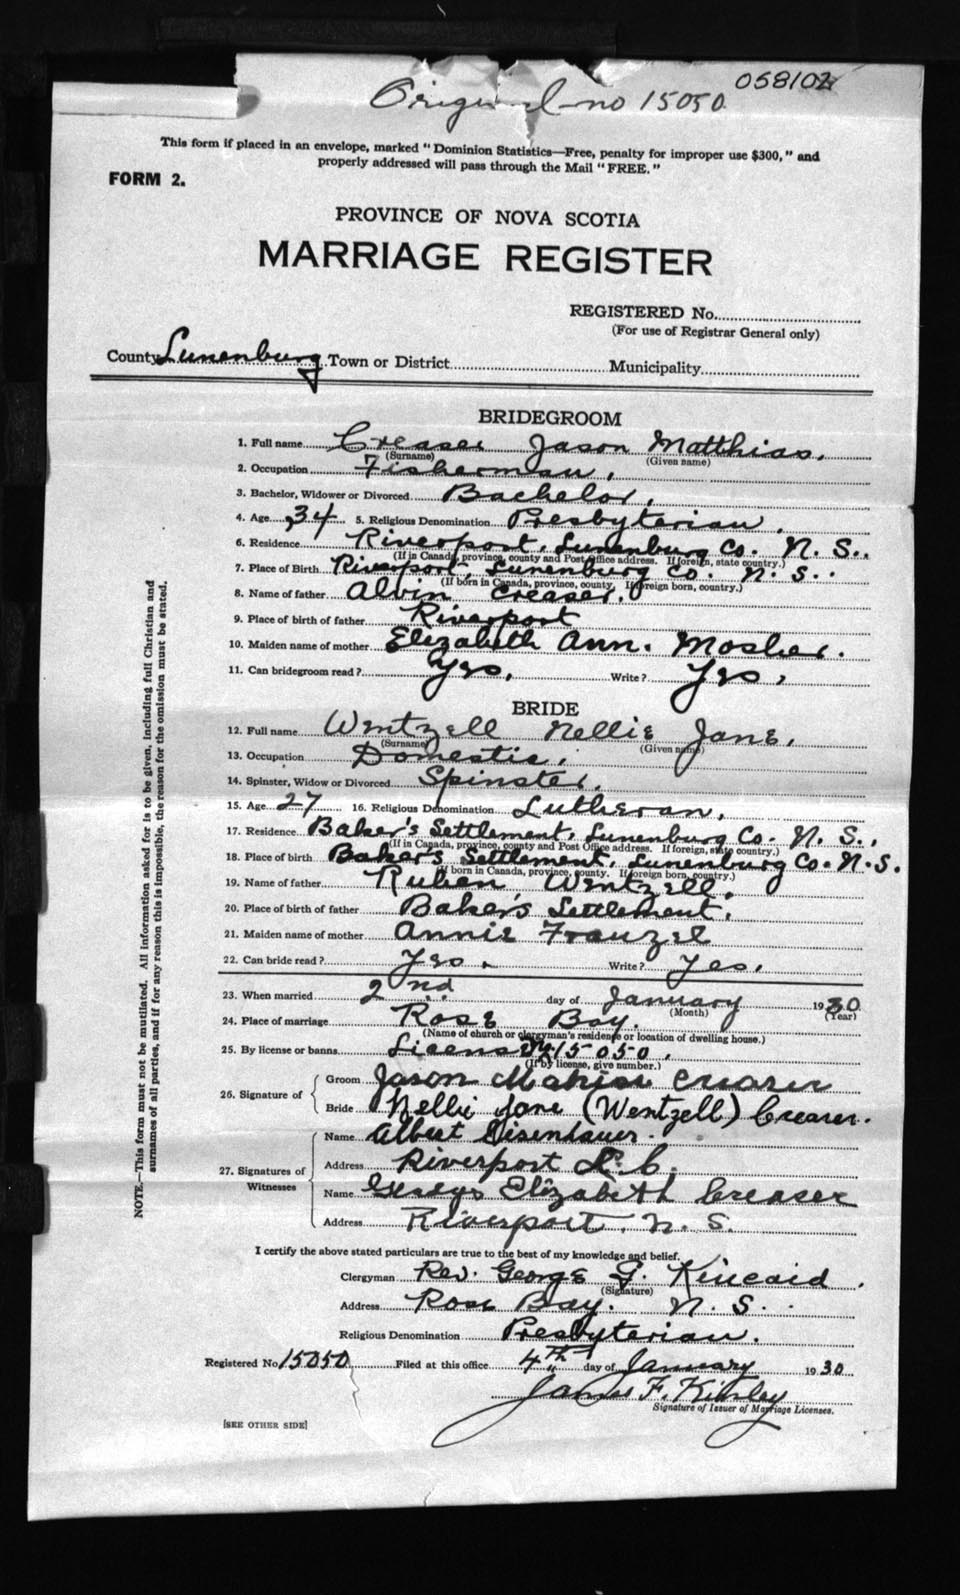 058102
Original no 15050
This form if placed in an envelope, marked "Dominion Statistics—Free, penalty for improper use $300," and
properly addressed will pass through the Mail "FREE."
FORM 2.
PROVINCE OF NOVA SCOTIA
MARRIAGE REGISTER
REGISTERED No.
(For use of Registrar General only)
County Lunenburg Town or District Municipality
BRIDEGROOM
1. Full name Creaser Jason Matthias.
(Surname) (Given name)
2. Occupation Fisherman.
3. Bachelor, Widower or Divorced Bachelor.
4. Age 34 5. Religious Denomination Presbyterian.
6. Residence Riverport, Lunenburg Co. N. S.
(If in Canada, province, county and Post Office address. If foreign, state country.)
7. Place of Birth Riverport, Lunenburg Co. N. S.
(If born in Canada, province, county. If foreign born, country.)
8. Name of father Albin Creaser.
9. Place of birth of father Riverport
10. Maiden name of mother Elizabeth Ann. Mosher.
11. Can bridegroom read? Yes. Write? Yes.
BRIDE
12. Full name Wentzell Nellie Jane.
(Surname) (Given name)
13. Occupation Domestic.
14. Spinster, Widow or Divorced Spinster.
15. Age 27 16. Religious Denomination Lutheran.
17. Residence Baker's Settlement, Lunenburg Co. N. S.
(If in Canada, province, county and Post Office address. If foreign, state country.)
18. Place of birth Baker's Settlement, Lunenburg Co. N. S.
(If born in Canada, province, county. If foreign born, country.)
19. Name of father Ruben Wentzell.
20. Place of birth of father Baker's Settlement.
21. Maiden name of mother Annie Frauzel
22. Can bride read? Yes. Write? Yes.
23. When married 2nd day of January 1930
(Month) (Year)
24. Place of marriage Rose Bay.
(Name of church or clergyman's residence or location of dwelling house.)
25. By license or banns License No. 15050.
(If by license, give number.)
26. Signature of Groom Jason Creaser
Bride Nellie Jane (Wentzell) Creaser.
27. Signatures of Witnesses Name Albert Eisenhauer.
Address Riverport
Name Gladys Elizabeth Creaser
Address Riverport. N. S.
I certify the above stated particulars are true to the best of my knowledge and belief.
Clergyman Rev. George G. Kincaid.
(Signature)
Address Rose Bay. N. S.
Religious Denomination Presbyterian.
Registered No 15050 Filed at this office 4th day of January 1930
James F. Kinley
Signature of Issuer of Marriage Licenses.
[SEE OTHER SIDE]
NOTE.—This form must not be mutilated. All information asked for is to be given, including full Christian and
surnames of all parties, and if for any reason this is impossible, the reason for the omission must be stated.